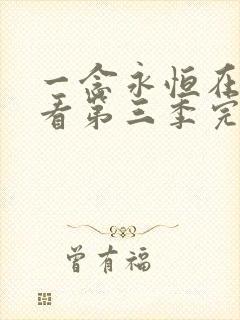 一念永恒在
看第三季完
曾有福